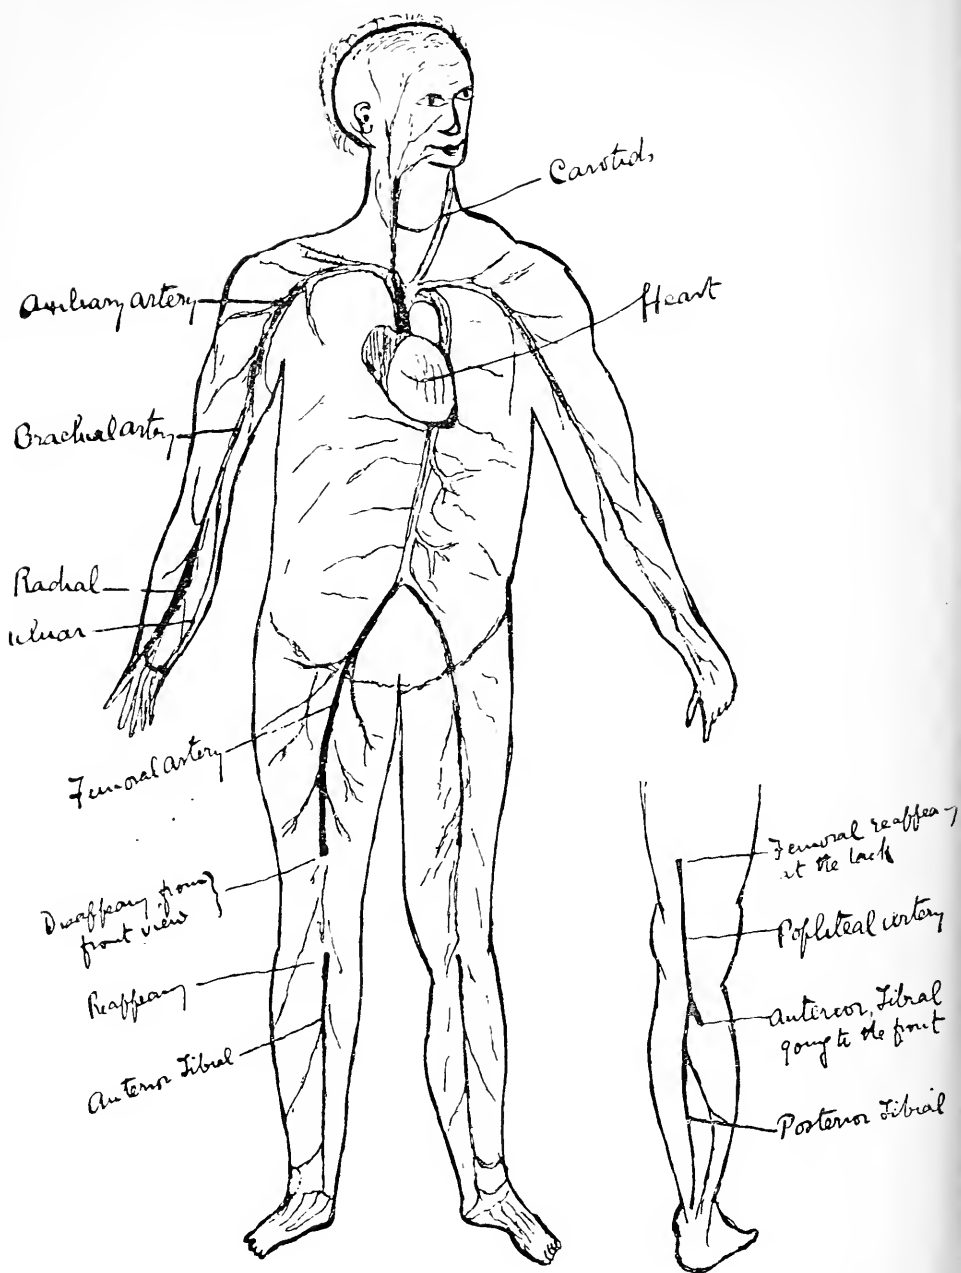 Carotids
Axillary artery
Heart
Brachial artery
Radial
Ulnar
Femoral artery
Disappears from
front view
Reappears
Anterior Tibial
Femoral reappears
at the back
Popliteal artery
Anterior Tibial
going to the front
Posterior Tibial